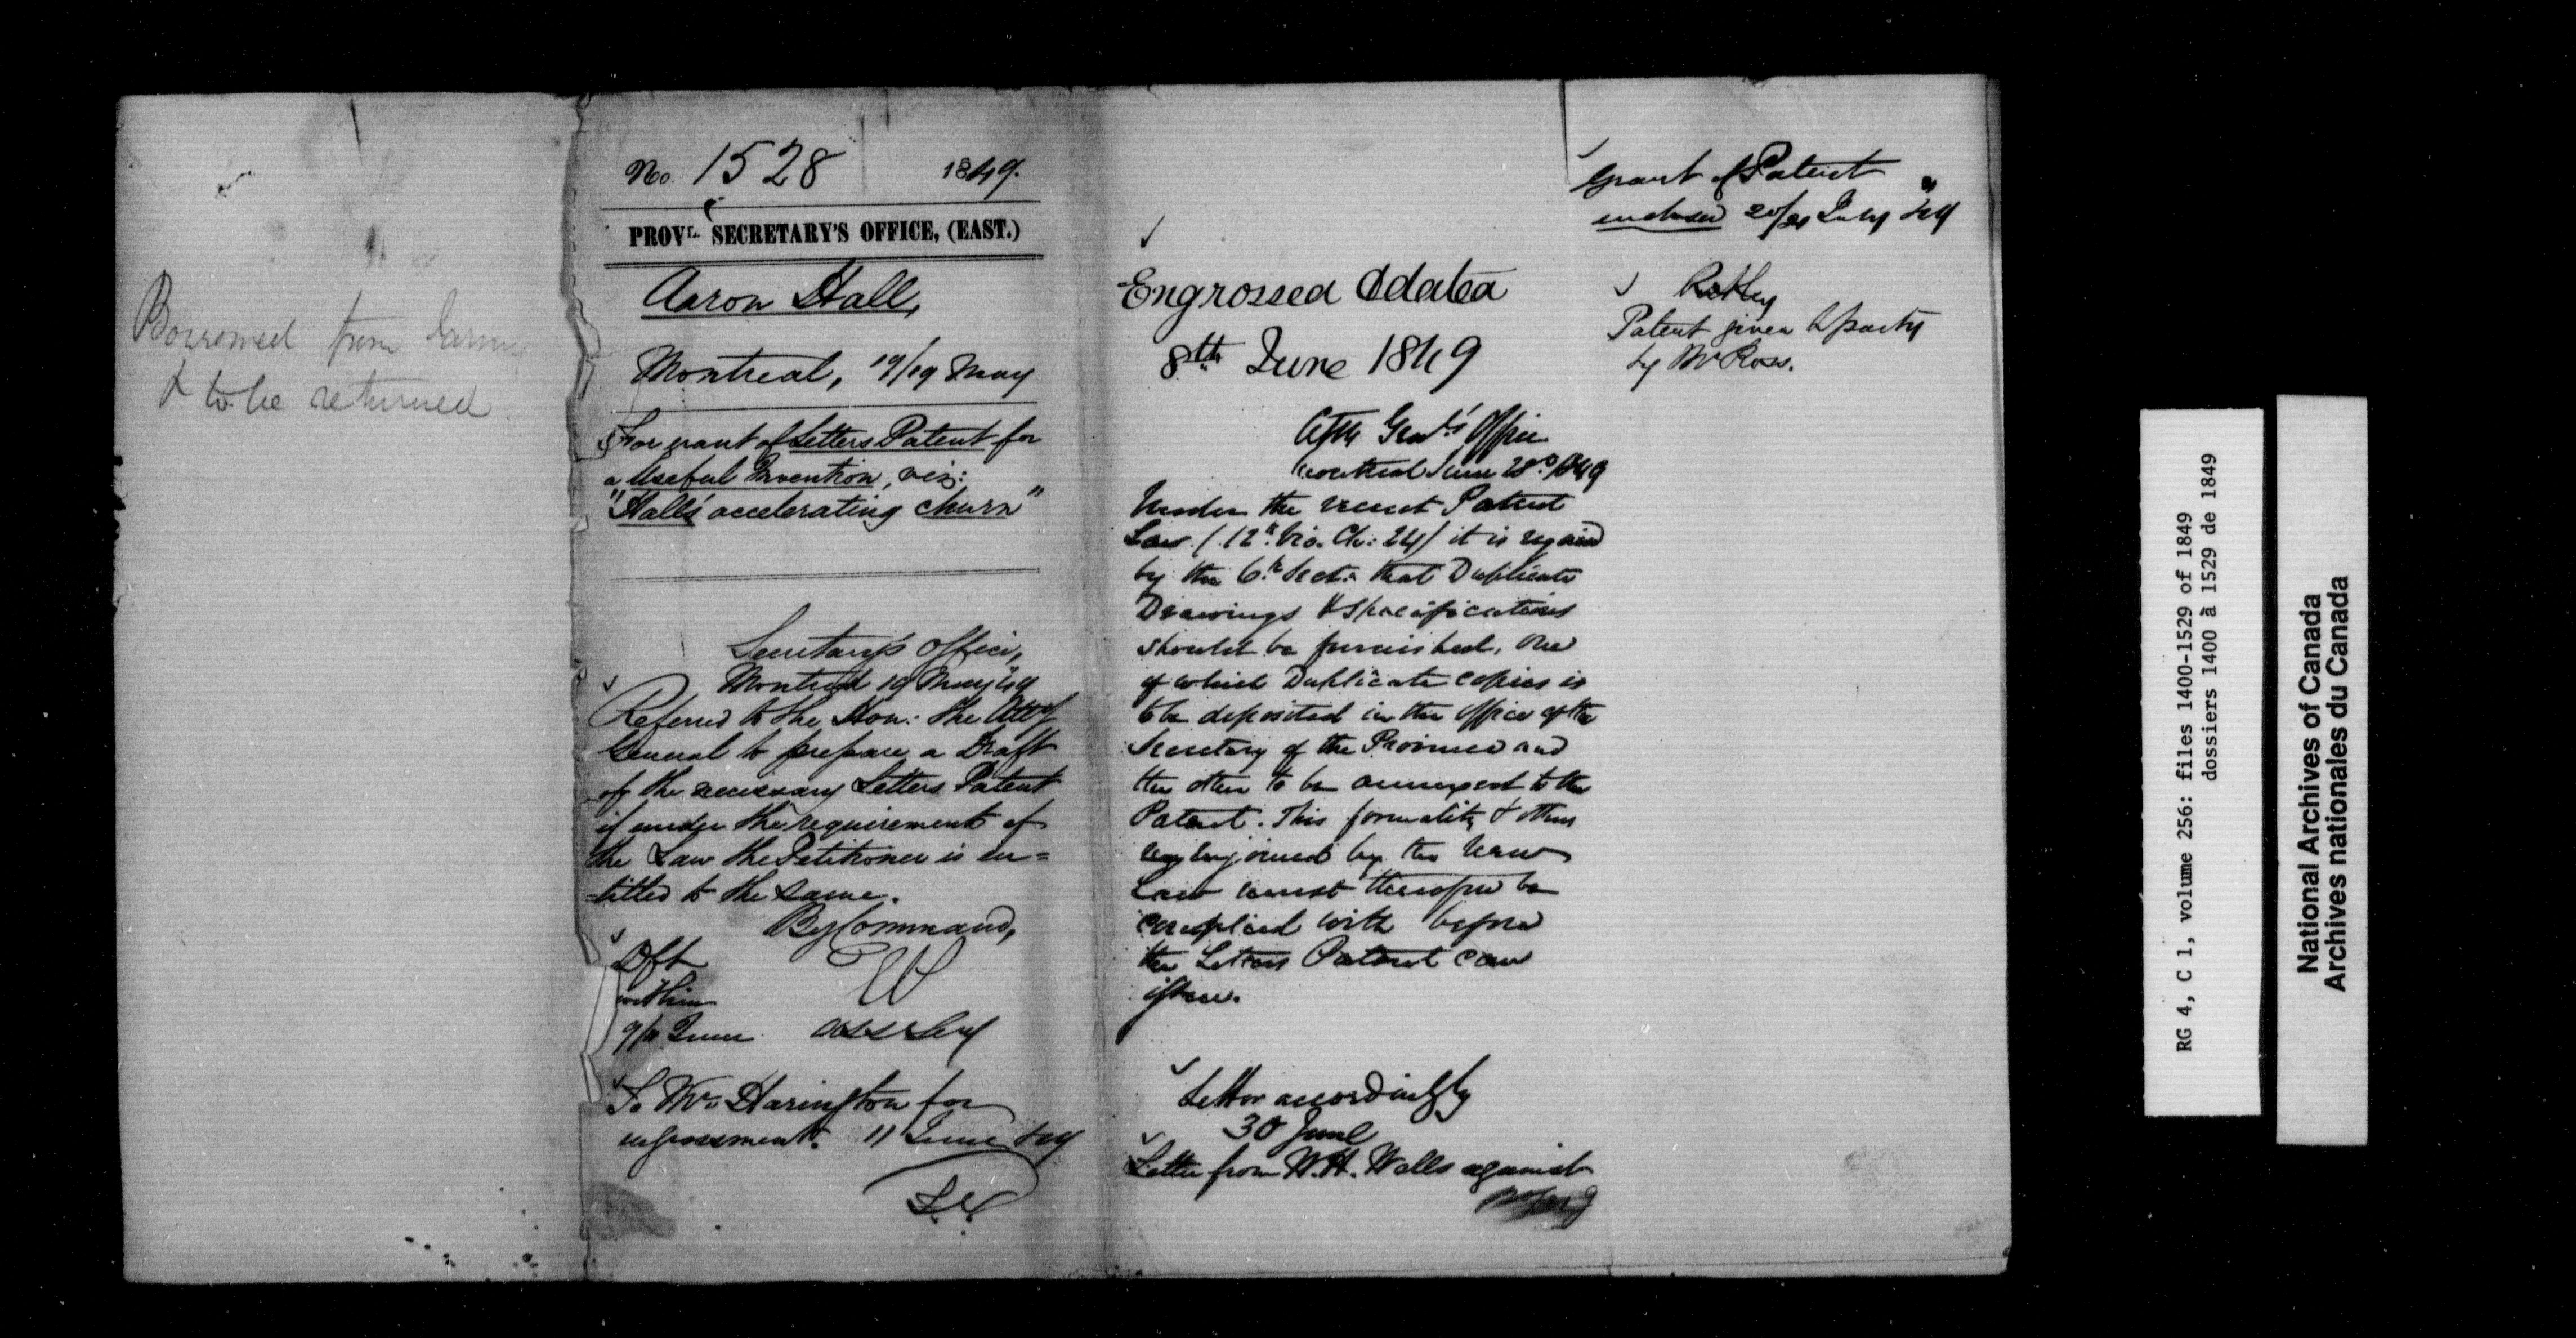 Borrowed from
& to be returned
No. 1528 1849.
PROVL. SECRETARY'S OFFICE, (EAST.)
Aaron Hall,
Montreal, 19/19 May
For grant of Letters Patent for
a Useful Invention, viz:
"Hall's accelerating churn"
Secretary's Office,
Montreal 19 May 49
Referred to the Hon: the Atty
General to prepare a Draft
of the necessary Letters Patent
if under the requirement of
the Law the Petitioner is en=
=titled to the same.
By Command,
Dft
within
9/11 June Ass Secy
To Mr. Harington for
engrossment. 11 June 49
Engrossed & dated
8th June 1849
Atty Genl's Office
Montreal June 28th 1849
Under the recent Patent
Law (12th Vic. Ch: 24) it is required
by the 6th Sectn that Duplicate
Drawings & Specifications
should be furnished, one
of which Duplicate copies is
to be deposited in the office of the
Secretary of the Province and
the other to be annexed to the
Patent. This formality & others
enjoined by the new
Law must therefore be
complied with before
the Letters Patent can
issue.
Letter accordingly
30 June
Letter from W. H. Walls against
Grant of Patent
enclosed 20/21 July 49
Patent given to party
by Mr Ross.
RG 4, C 1, volume 256: files 1400-1529 of 1849
dossiers 1400 à 1529 de 1849
National Archives of Canada
Archives nationales du Canada